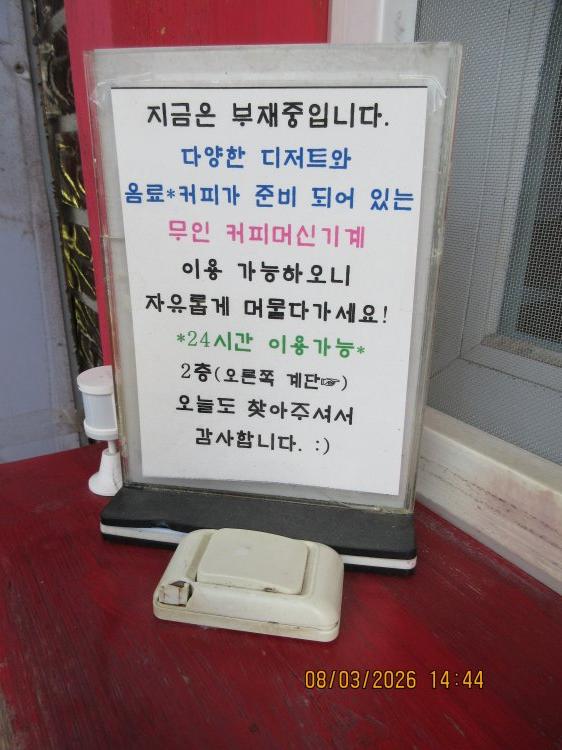 지금은 부재중입니다.
다양한 디저트와
음료*커피가 준비 되어 있는
무인 커피머신기계
이용 가능하오니
자유롭게 머물다가세요!
*24시간 이용가능*
2층(오른쪽 계단☞)
오늘도 찾아주셔서
감사합니다. :)
08/03/2026 14:44